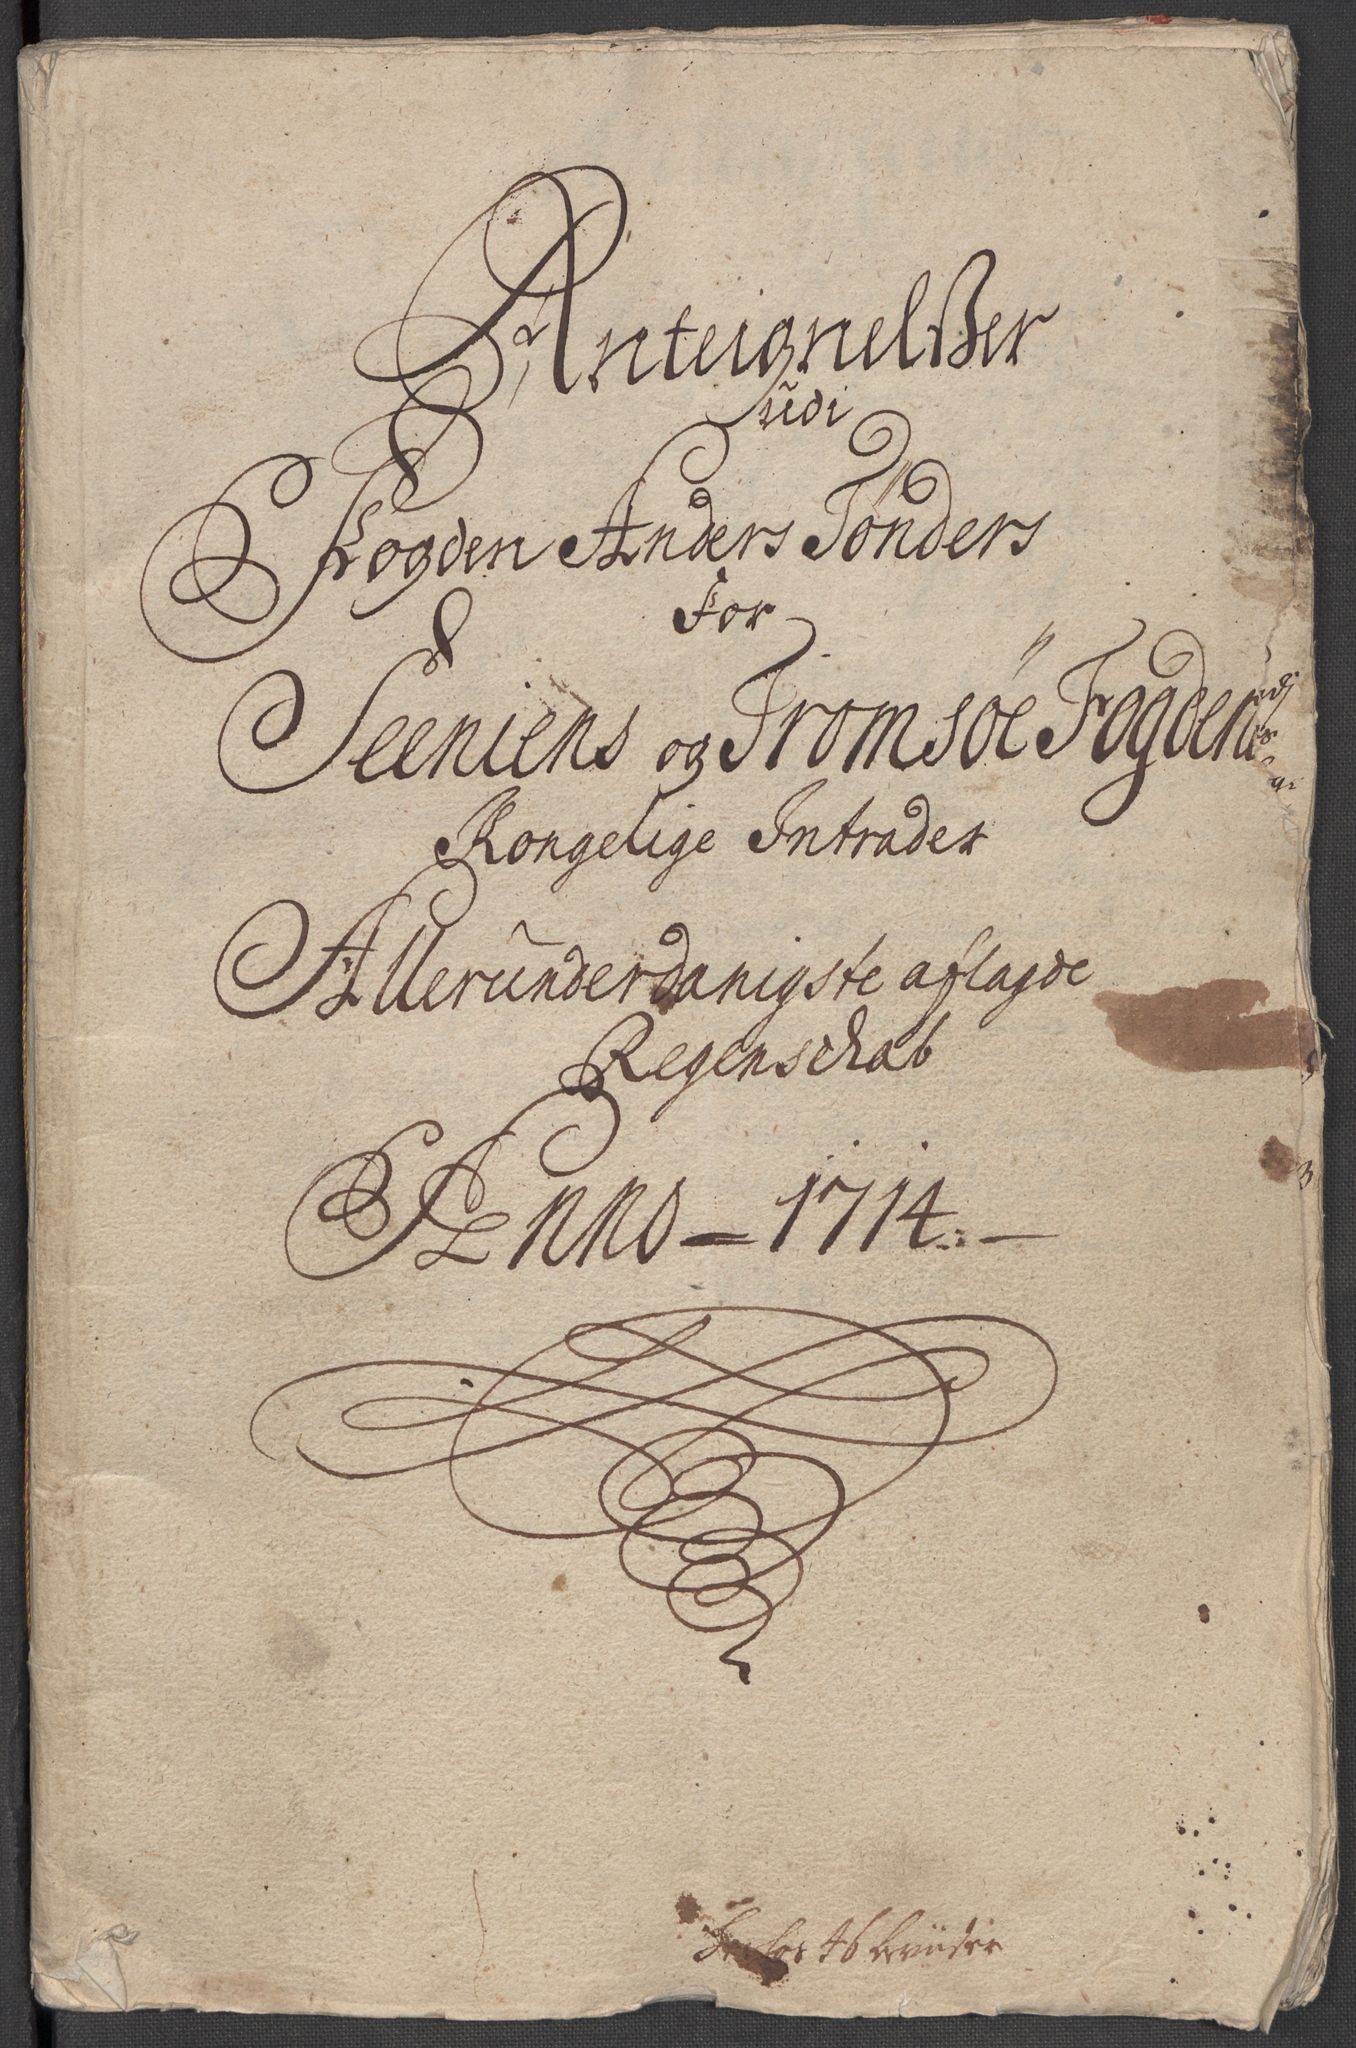 Anteignelßer
udi
Fogden Anders Tönders
For
Seeniens og Tromsöe Fogderi
Kongelige Intrader
Allerunderdanigste aflagde
Regenschab
Anno - 1714. -